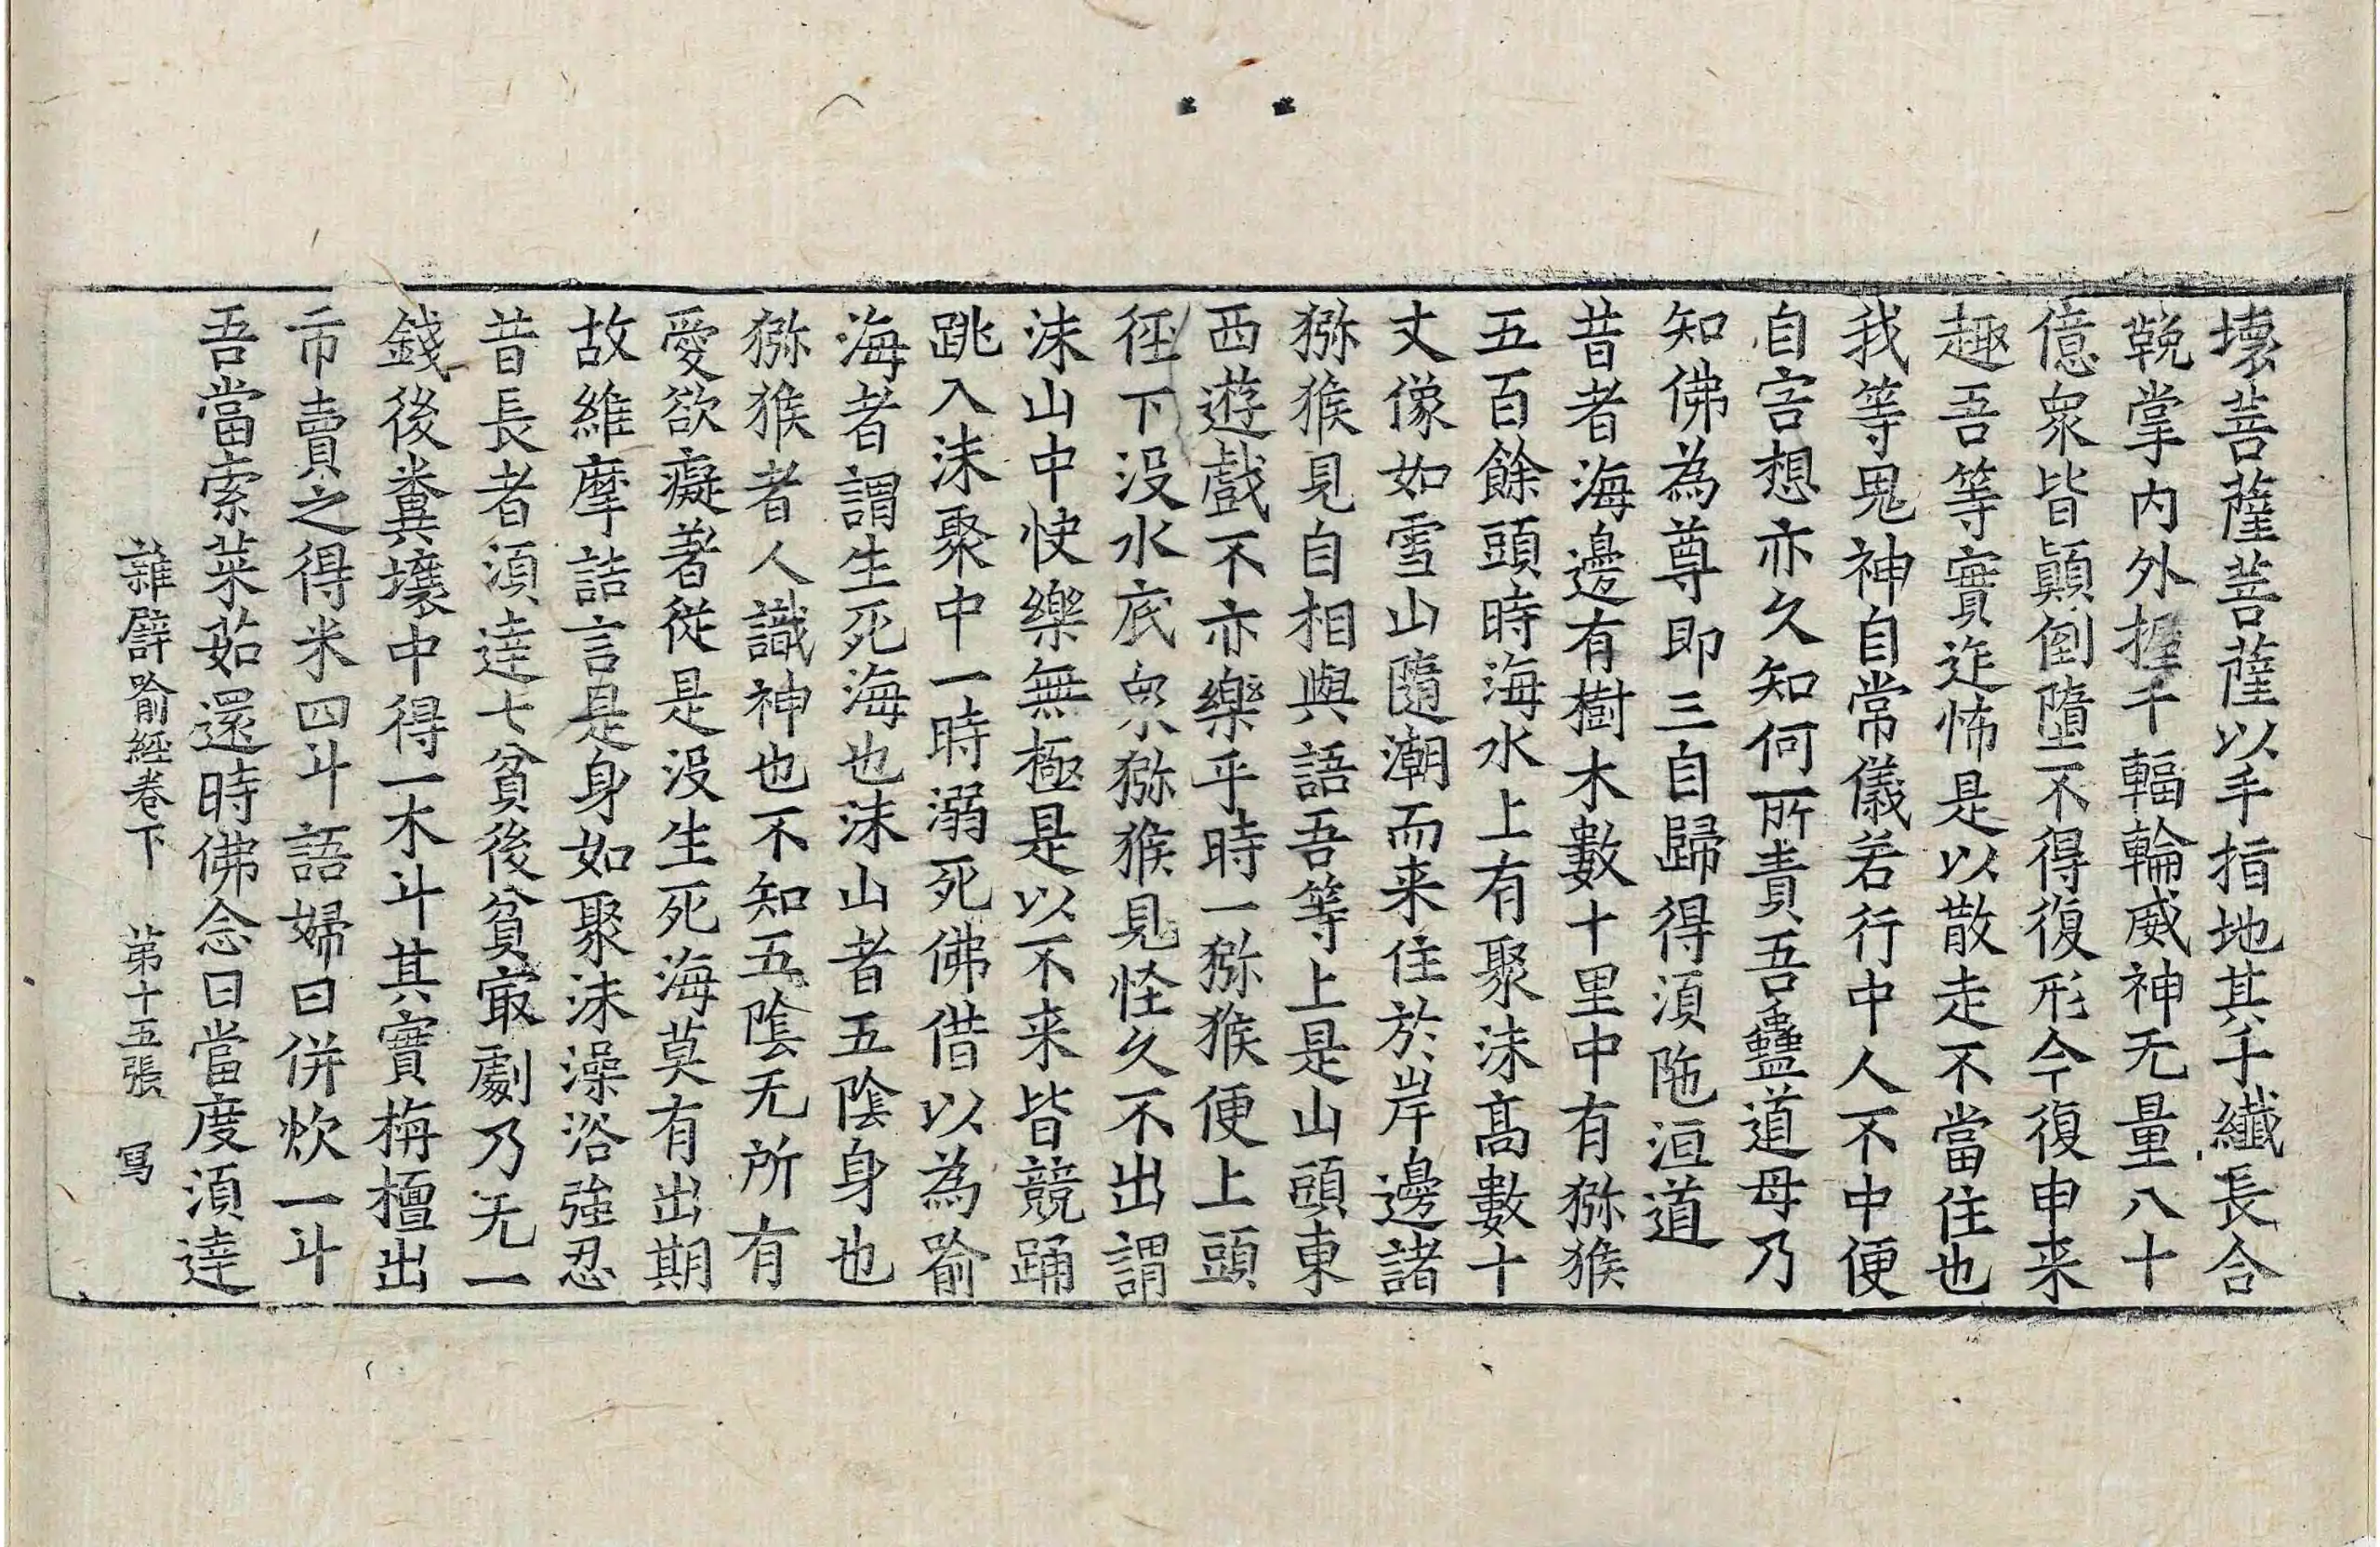 壞菩薩菩薩以手指地其手纖長合
鞔掌內外握千輻輪威神无量八十
億衆皆顚倒墮不得復形今復申来
趣吾等實迮怖是以散走不當住也
我等鬼神自常儀若行中人不中便
自害想亦久知何所責吾蠱道母乃
知佛為尊即三自歸得湏陁洹道
昔者海邊有樹木數十里中有獼猴
五百餘頭時海水上有聚沫髙數十
丈像如雪山隨潮而来住於岸邊諸
獼猴見自相與語吾等上是山頭東
西遊戲不亦樂乎時一獼猴便上頭
徑下没水底衆獼猴見怪久不出謂
沫山中快樂無極是以不来皆競踊
跳入沫聚中一時溺死佛借以為喻
海者謂生死海也沫山者五陰身也
獼猴者人識神也不知五陰无所有
愛欲癡著從是没生死海莫有出期
故維摩詰言是身如聚沫澡浴強忍
昔長者湏達七貧後貧㝡劇乃无一
錢後糞壤中得一木斗其實栴檀出
市賣之得米四斗語婦曰併炊一斗
吾當索菜茹還時佛念曰當度湏達
雜譬喻經卷下 第十五張 寫